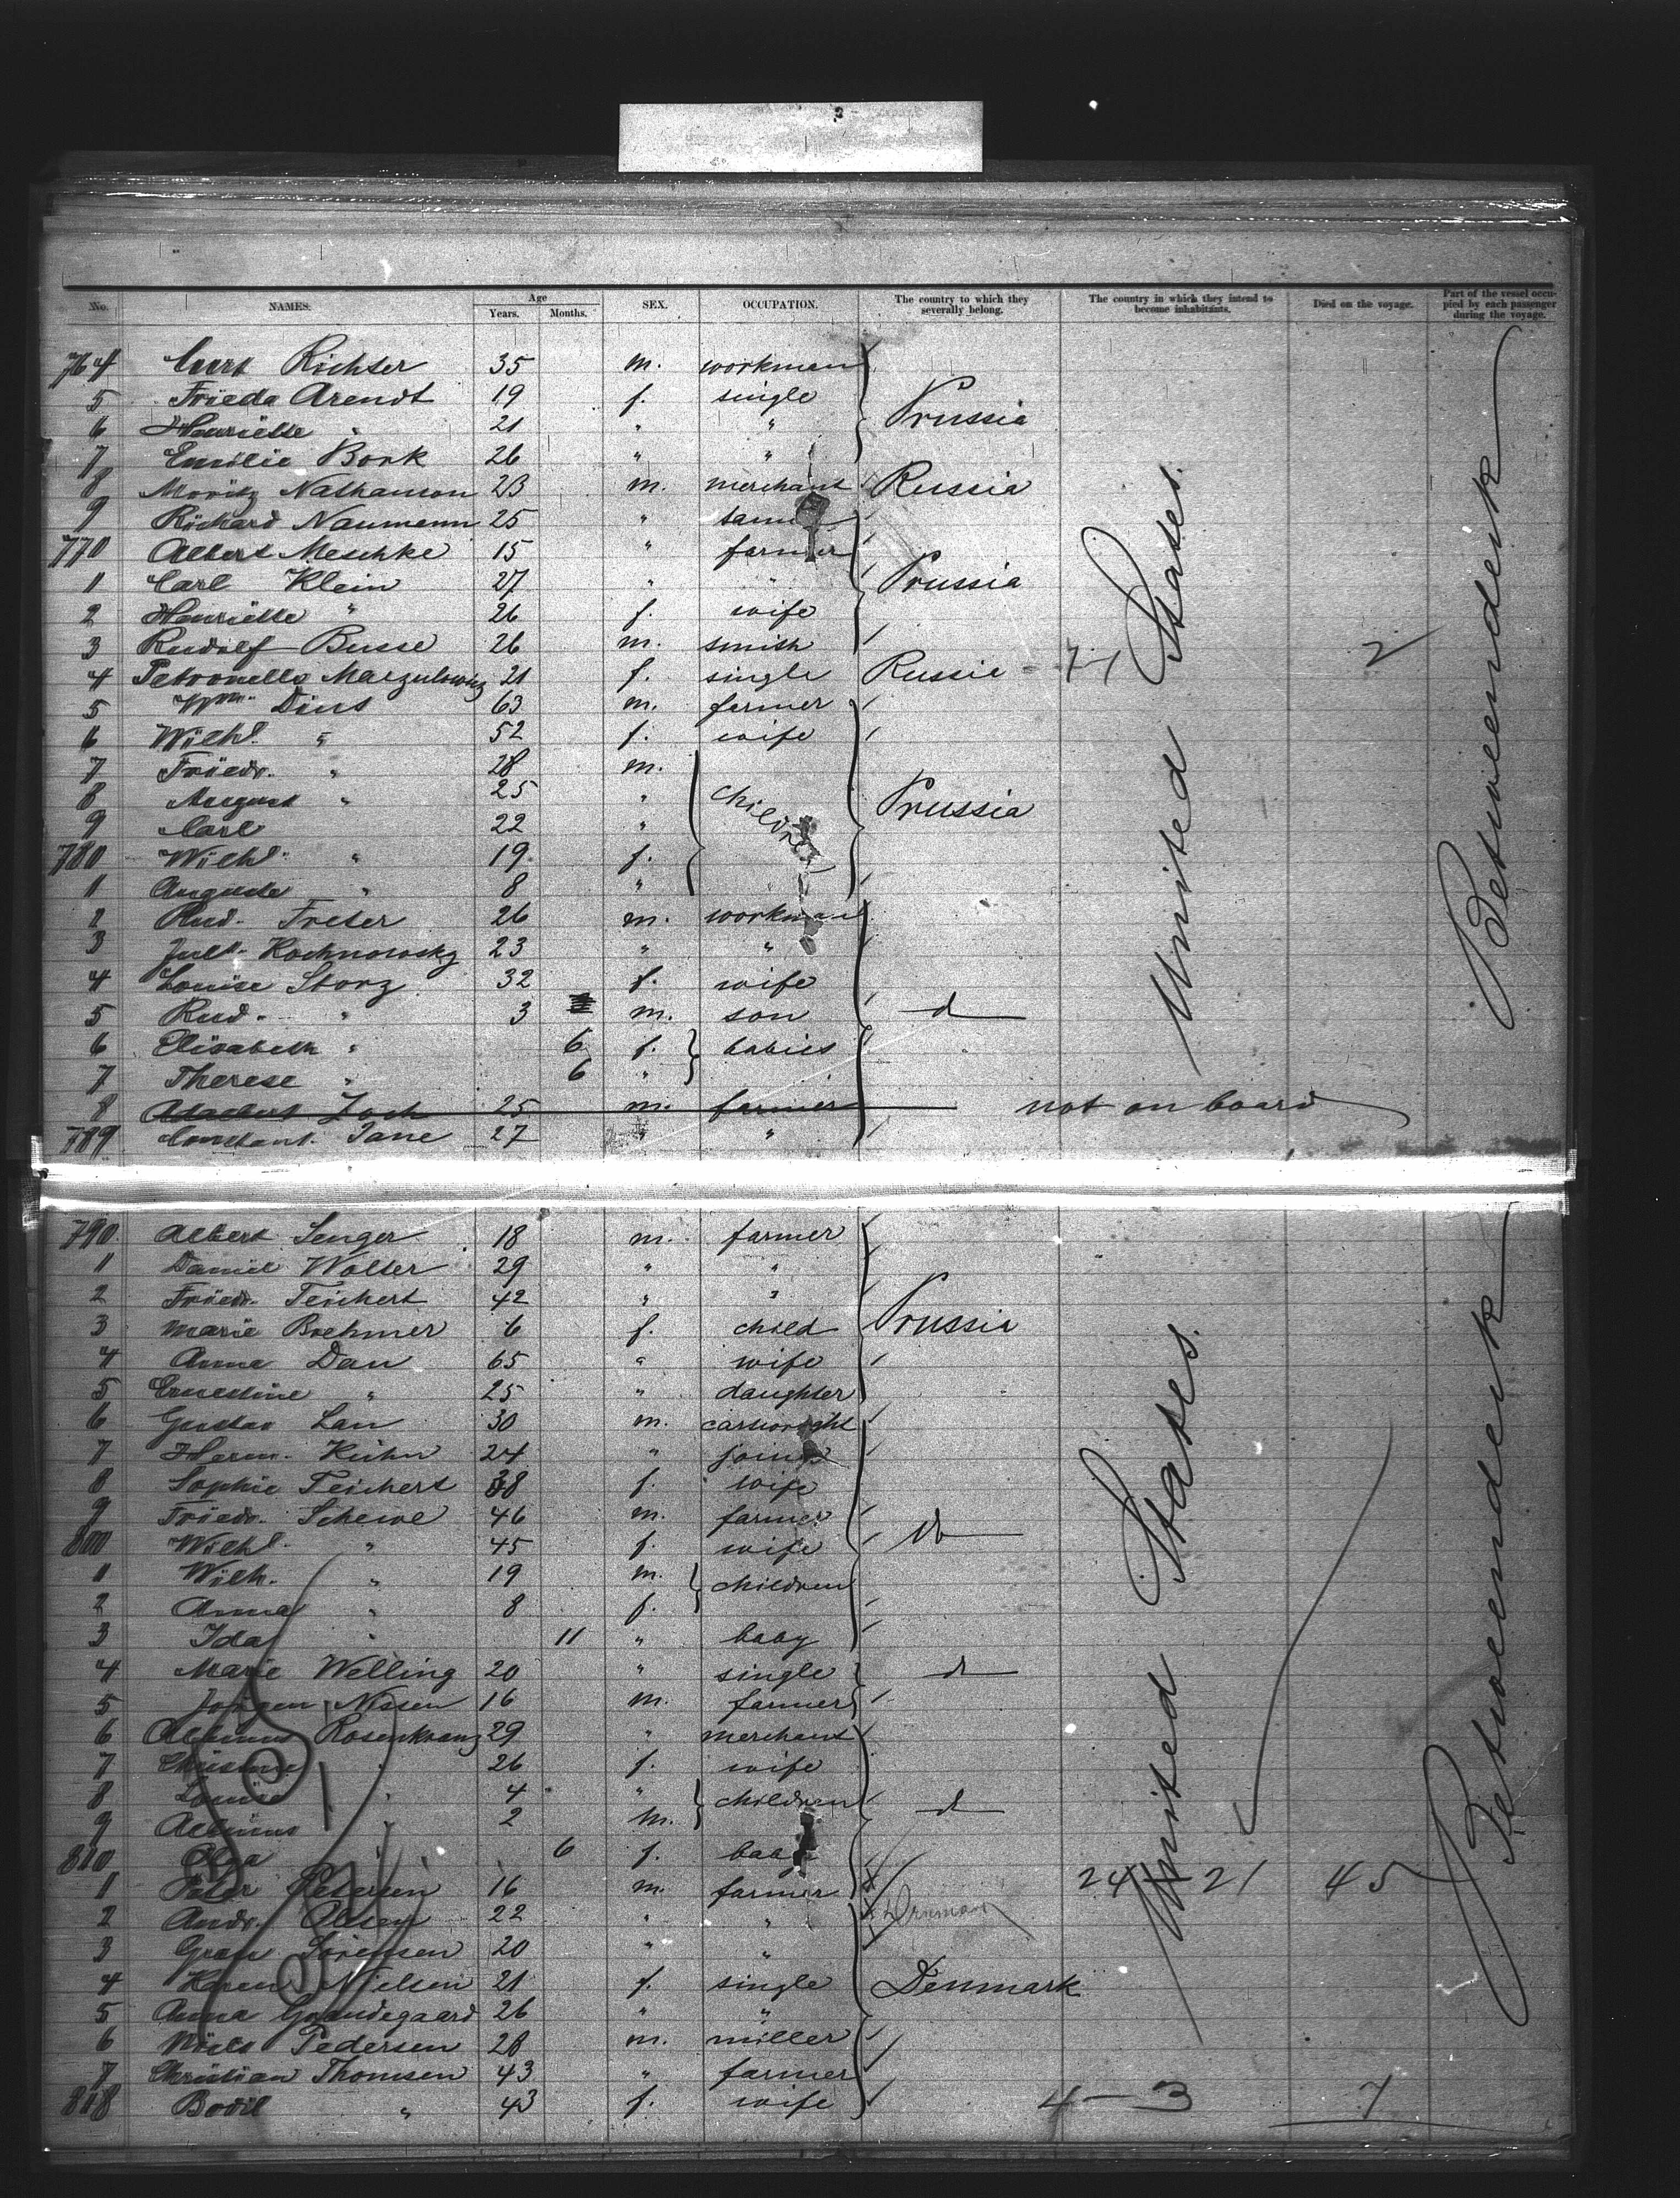 No. NAMES. Age Years. Months. SEX. OCCUPATION. The country to which they severally belong. The country in which they intend to become inhabitants. Died on the voyage. Part of the vessel occupied by each passenger during the voyage.
764 Curt Richter 35 m. workman
5 Frieda Arendt 19 f. single
6 Henriette " 21 " " Prussia
7 Emilie Bork 26 " "
8 Moritz Nathanson 23 m. merchant Russia
9 Richard Naumann 25 "
770 Albert Meschke 15 " farmer
1 Carl Klein 27 " " Prussia
2 Henriette " 26 f. wife
3 Rudolf Busse 26 m. smith 2
4 Petronella 21 f. single Russia - 1 - 1
5 Wm. Dins 63 m. farmer
6 Wilhl. " 52 f. wife
7 Friedr. " 28 m.
8 August " 25 " children Prussia
9 Carl 22 "
780 Wilhl. " 19 f.
1 Auguste " 8 "
2 Rud. Freter 26 m. workman
3 Jul. Kochnowsky 23 " "
4 Louise Storz 32 f. wife
5 Rud. " 3 m. son do
6 Elisabeth " 6 f. babies
7 Therese " 6 "
8 Zoch 25 m. farmer not on board
789 Constant. Jane 27 " "
United States.
Betweendenk
790 Albert Senger 18 m. farmer
1 Daniel Wolter 29 " "
2 Friedr. Teichert 42 " "
3 Marie Boehmer 6 f. child Prussia
4 Anna Dau 65 " wife
5 Ernestine " 25 " daughter
6 Gustav Lau 30 m. cartwright
7 Herm. Kühn 24 " joiner
8 Sophie Teichert 38 f. wife
9 Friedr. Schewe 46 m. farmer do
800 Wilhl. " 45 f. wife
1 Wilh. " 19 m. children
2 Anna " 8 f.
3 Ida " 11 " baby
4 Marie Welling 20 " single do
5 Jörgen Nissen 16 m. farmer
6 Albinus Rosenkranz 29 " merchant
7 Christine " 26 f. wife
8 Louise " 4 " children do
9 Albinus " 2 m.
810 Olga " 6 f. baby
1 Peter Petersen 16 m. farmer 24 - 21 45
2 Andr. Olsen 22 " "
3 Sörensen 20 " "
4 Karen Nielsen 21 f. single Denmark
5 Anna 26 " "
6 Niels Pedersen 28 m. miller
7 Christian Thomsen 43 " farmer
818 Bodil " 43 f. wife 4 - 3 7
United States.
Betweendenk